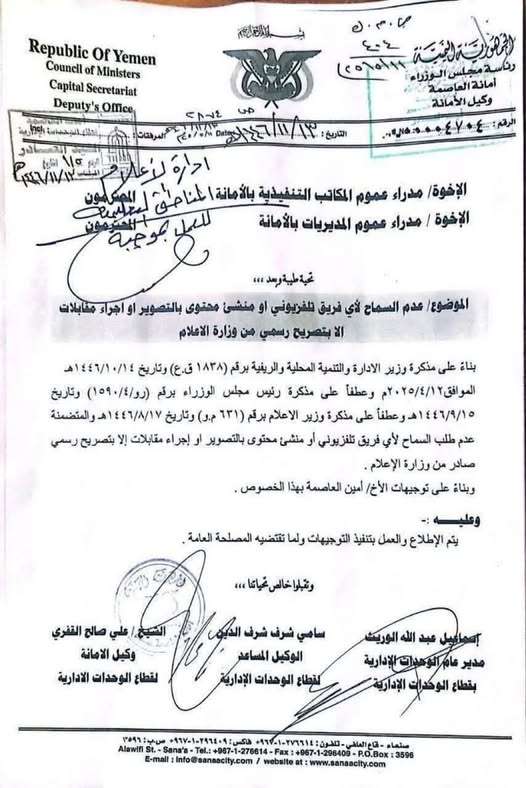 الجمهورية اليمنية
رئاسة مجلس الوزراء
أمانة العاصمة
وكيل الأمانة
Republic Of Yemen
Council of Ministers
Capital Secretariat
Deputy's Office
الرقم:
التاريخ: ١٤٤٦/١١/١٣هـ
Date:
المرفقات:
الإخوة/ مدراء عموم المكاتب التنفيذية بالأمانة المحترمون
الإخوة/ مدراء عموم المديريات بالأمانة المحترمون
تحية طيبة وبعد ,,,
الموضوع/ عدم السماح لأي فريق تلفزيوني او منشئ محتوى بالتصوير او اجراء مقابلات
الا بتصريح رسمي من وزارة الاعلام
بناءً على مذكرة وزير الادارة والتنمية المحلية والريفية برقم (١٨٣٨ ق.ع) وتاريخ ١٤٤٦/١٠/١٤هـ
الموافق٢٠٢٥/٤/١٢م وعطفاً على مذكرة رئيس مجلس الوزراء برقم (رو/١٥٩٠/٤) وتاريخ
١٤٤٦/٩/١٥هـ وعطفاً على مذكرة وزير الاعلام برقم (٦٣١ م.و) وتاريخ ١٤٤٦/٨/١٧هـ والمتضمنة
عدم طلب السماح لأي فريق تلفزيوني أو منشئ محتوى بالتصوير او إجراء مقابلات إلا بتصريح رسمي
صادر من وزارة الإعلام .
وبناءً على توجيهات الأخ/ أمين العاصمة بهذا الخصوص .
وعليـــه :-
يتم الإطلاع والعمل بتنفيذ التوجيهات ولما تقتضيه المصلحة العامة .
وتقبلوا خالص تحياتنا ,,,
إسماعيل عبد الله الوريث
مدير عام الوحدات الإدارية
بقطاع الوحدات الإدارية
سامي شرف شرف الدين
الوكيل المساعد
لقطاع الوحدات الإدارية
الشيخ/ علي صالح القفري
وكيل الامانة
لقطاع الوحدات الادارية
صنعاء - قاع العلفي - تلفون: ٢٧٦٦١٤-١-٩٦٧+ فاكس: ٢٩٦٤٠٩-١-٩٦٧+ ص.ب: ٣٥٩٦
Alawifi St. - Sana'a - Tel.: +967-1-276614 - Fax : +967-1-296409 - P.O.Box : 3596
E-mail : Info@sanaacity.com / website at : www.sanaacity.com